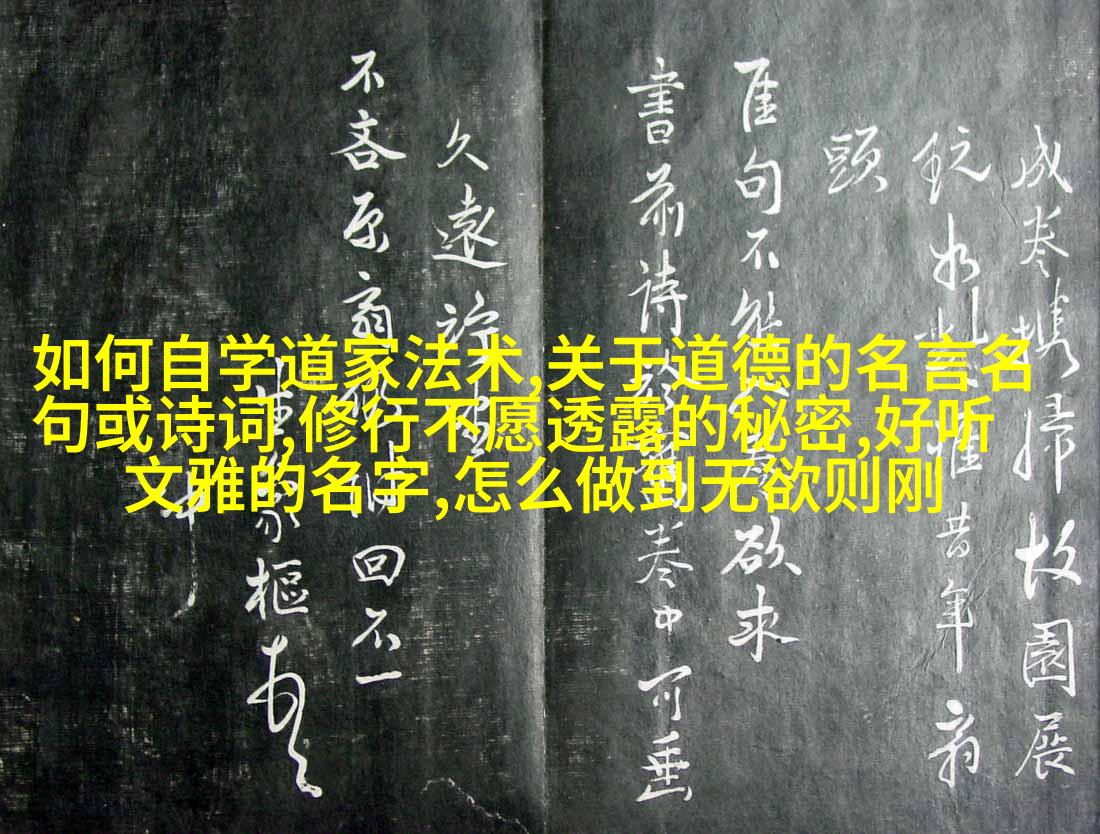 如何自学道家法术,关于道德的名言名
句或诗词,修行不愿透露的秘密,好听
文雅的名字,怎么做到无欲则刚
成卷携歸故園展
玩如 惟昔年
頭
佳句不能 欲求
書前詩 卷中可垂
久遠
不吝原 回不一
樞